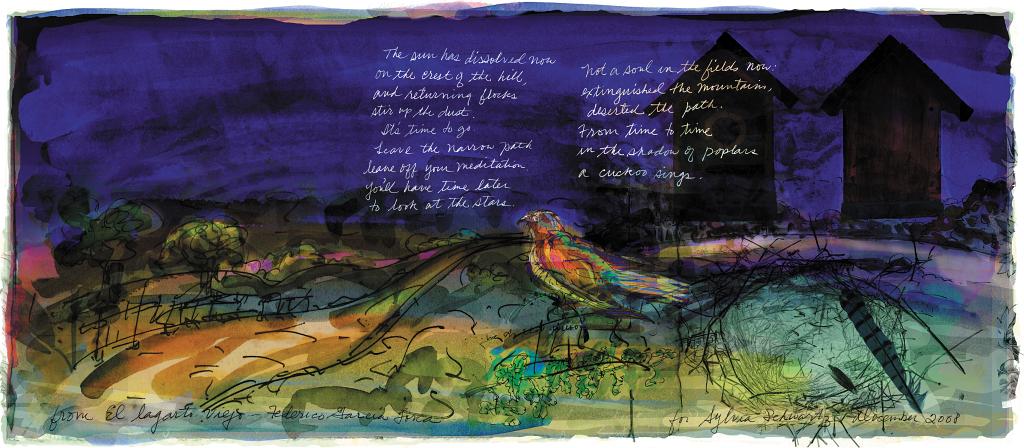 The sun has dissolved now
on the crest of the hill,
and returning flocks
stir up the dust.
It's time to go.
Leave the narrow path
leave off your meditation.
You'll have time later
to look at the stars.
Not a soul in the fields now:
extinguished the mountains,
deserted the path.
From time to time
in the shadow of poplars
a cuckoo sings.
from El lagarto Viejo - Federico Garcia Lorca
for Sylvia Schwartz / December 2008